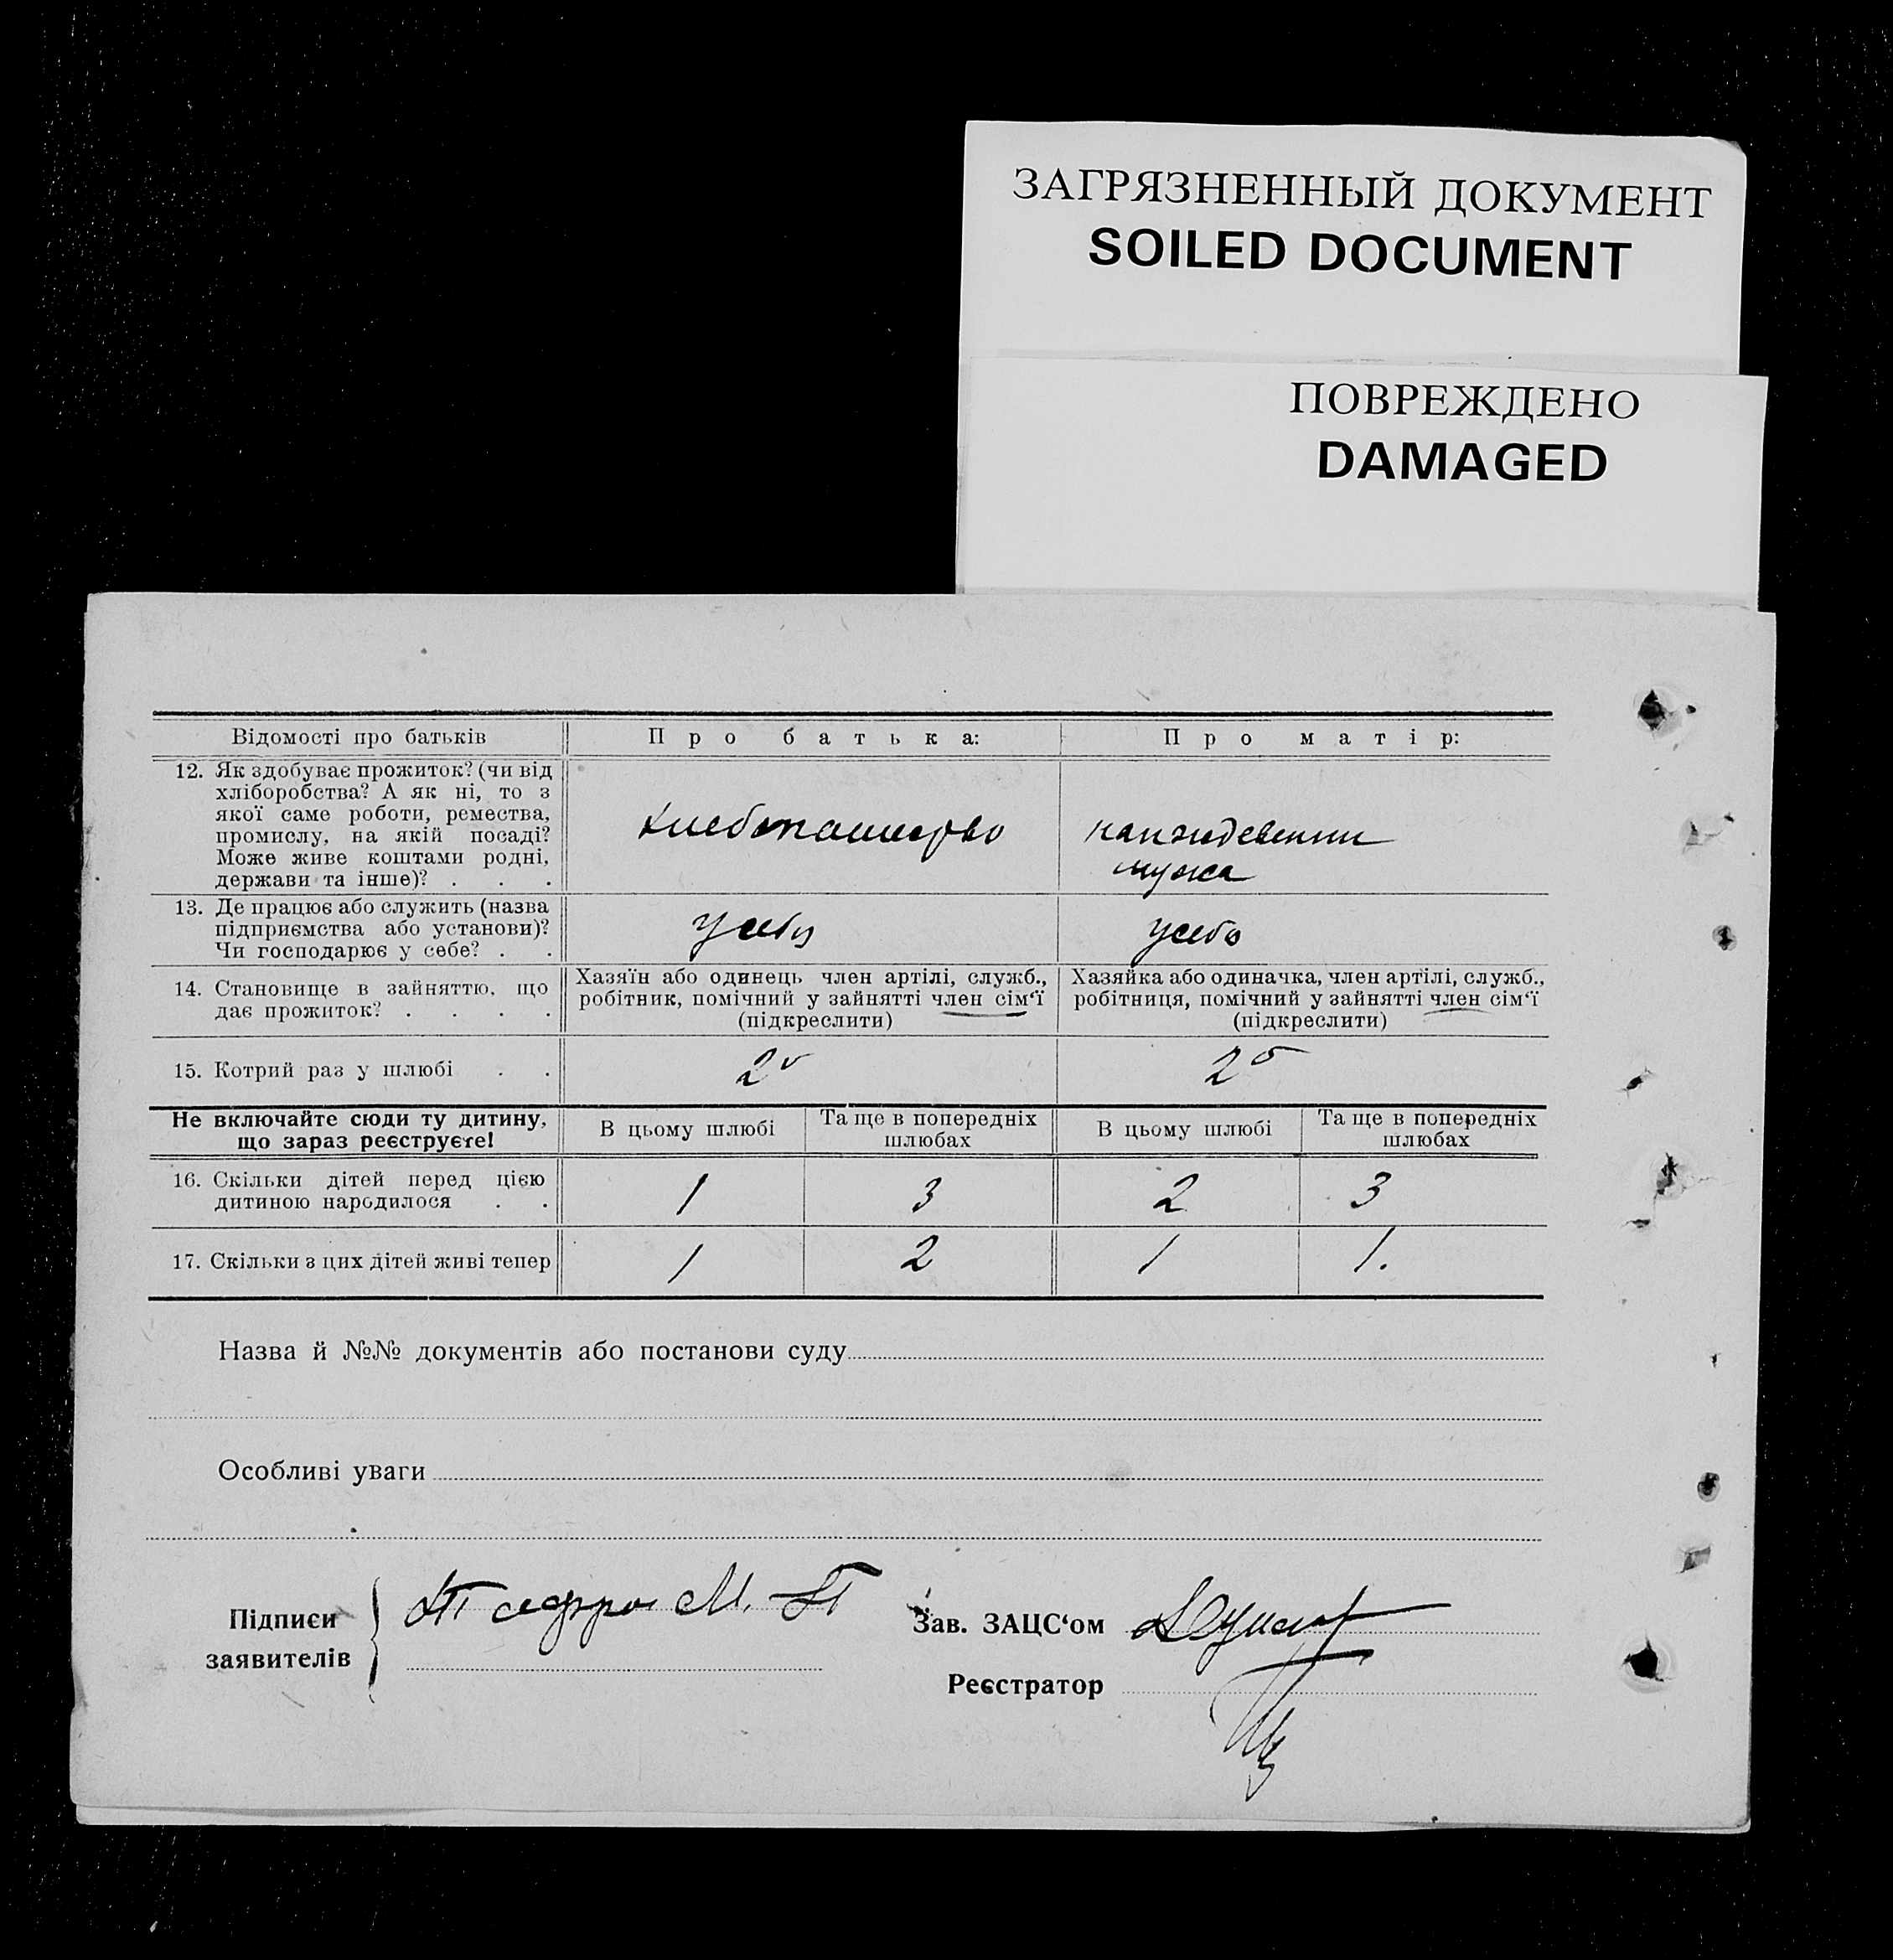 ЗАГРЯЗНЕННЫЙ ДОКУМЕНТ
SOILED DOCUMENT
ПОВРЕЖДЕНО
DAMAGED
Відомості про батьків
Про батька:
Про матір:
12. Як здобуває прожиток? (чи від
хліборобства? А як ні, то з
якої саме роботи, ремества,
промислу, на якій посаді?
Може живе коштами родні,
держави та інше)? . . .
мужа
13. Де працює або служить (назва
підприємства або установи)?
Чи господарює у себе? . .
усебя
усебо
14. Становище в зайняттю, що
дає прожиток? . . . .
Хазяїн або одинець член артілі, служб.,
робітник, помічний у зайнятті член сім‘ї
(підкреслити)
Хазяйка або одиначка, член артілі, служб.,
робітниця, помічний у зайнятті член сім‘ї
(підкреслити)
15. Котрий раз у шлюбі . .
2й
2й
Не включайте сюди ту дитину,
що зараз реєструєте!
В цьому шлюбі
Та ще в попередніх
шлюбах
В цьому шлюбі
Та ще в попередніх
шлюбах
16. Скільки дітей перед цією
дитиною народилося . .
1
3
2
3
17. Скільки з цих дітей живі тепер
1
2
1
1.
Назва й №№ документів або постанови суду
Особливі уваги
Підписи
заявителів
Зав. ЗАЦС‘ом
Реєстратор